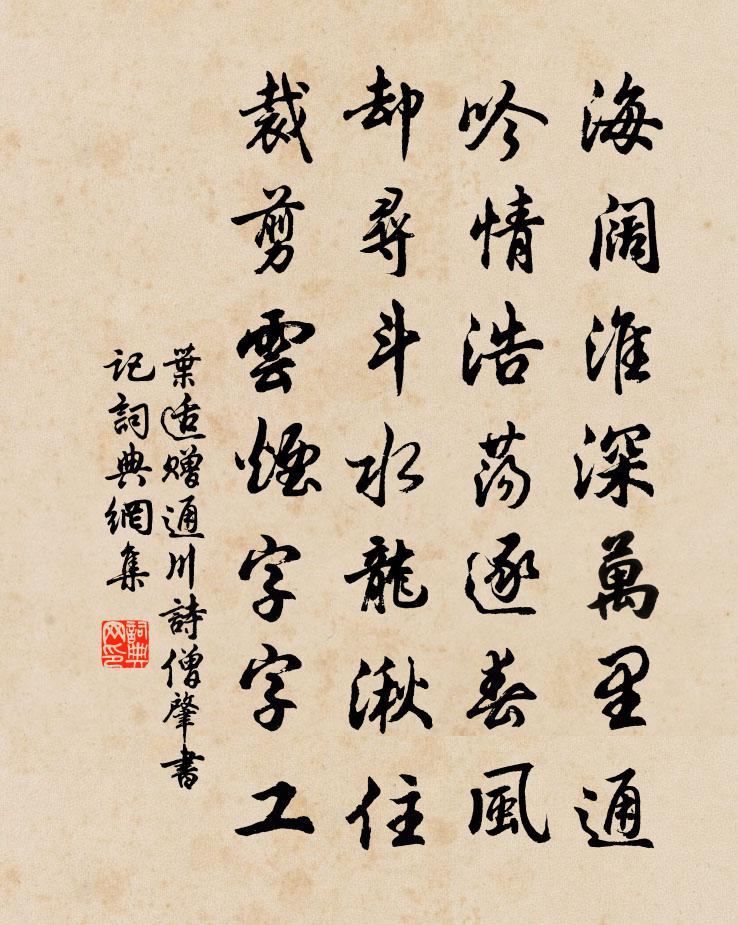 海闊淮深萬里通
吟情浩蕩逐春風
却尋斗水龍湫住
裁剪雲煙字字工
葉适贈通川詩僧肇書
記詞典網集
詞典
网印